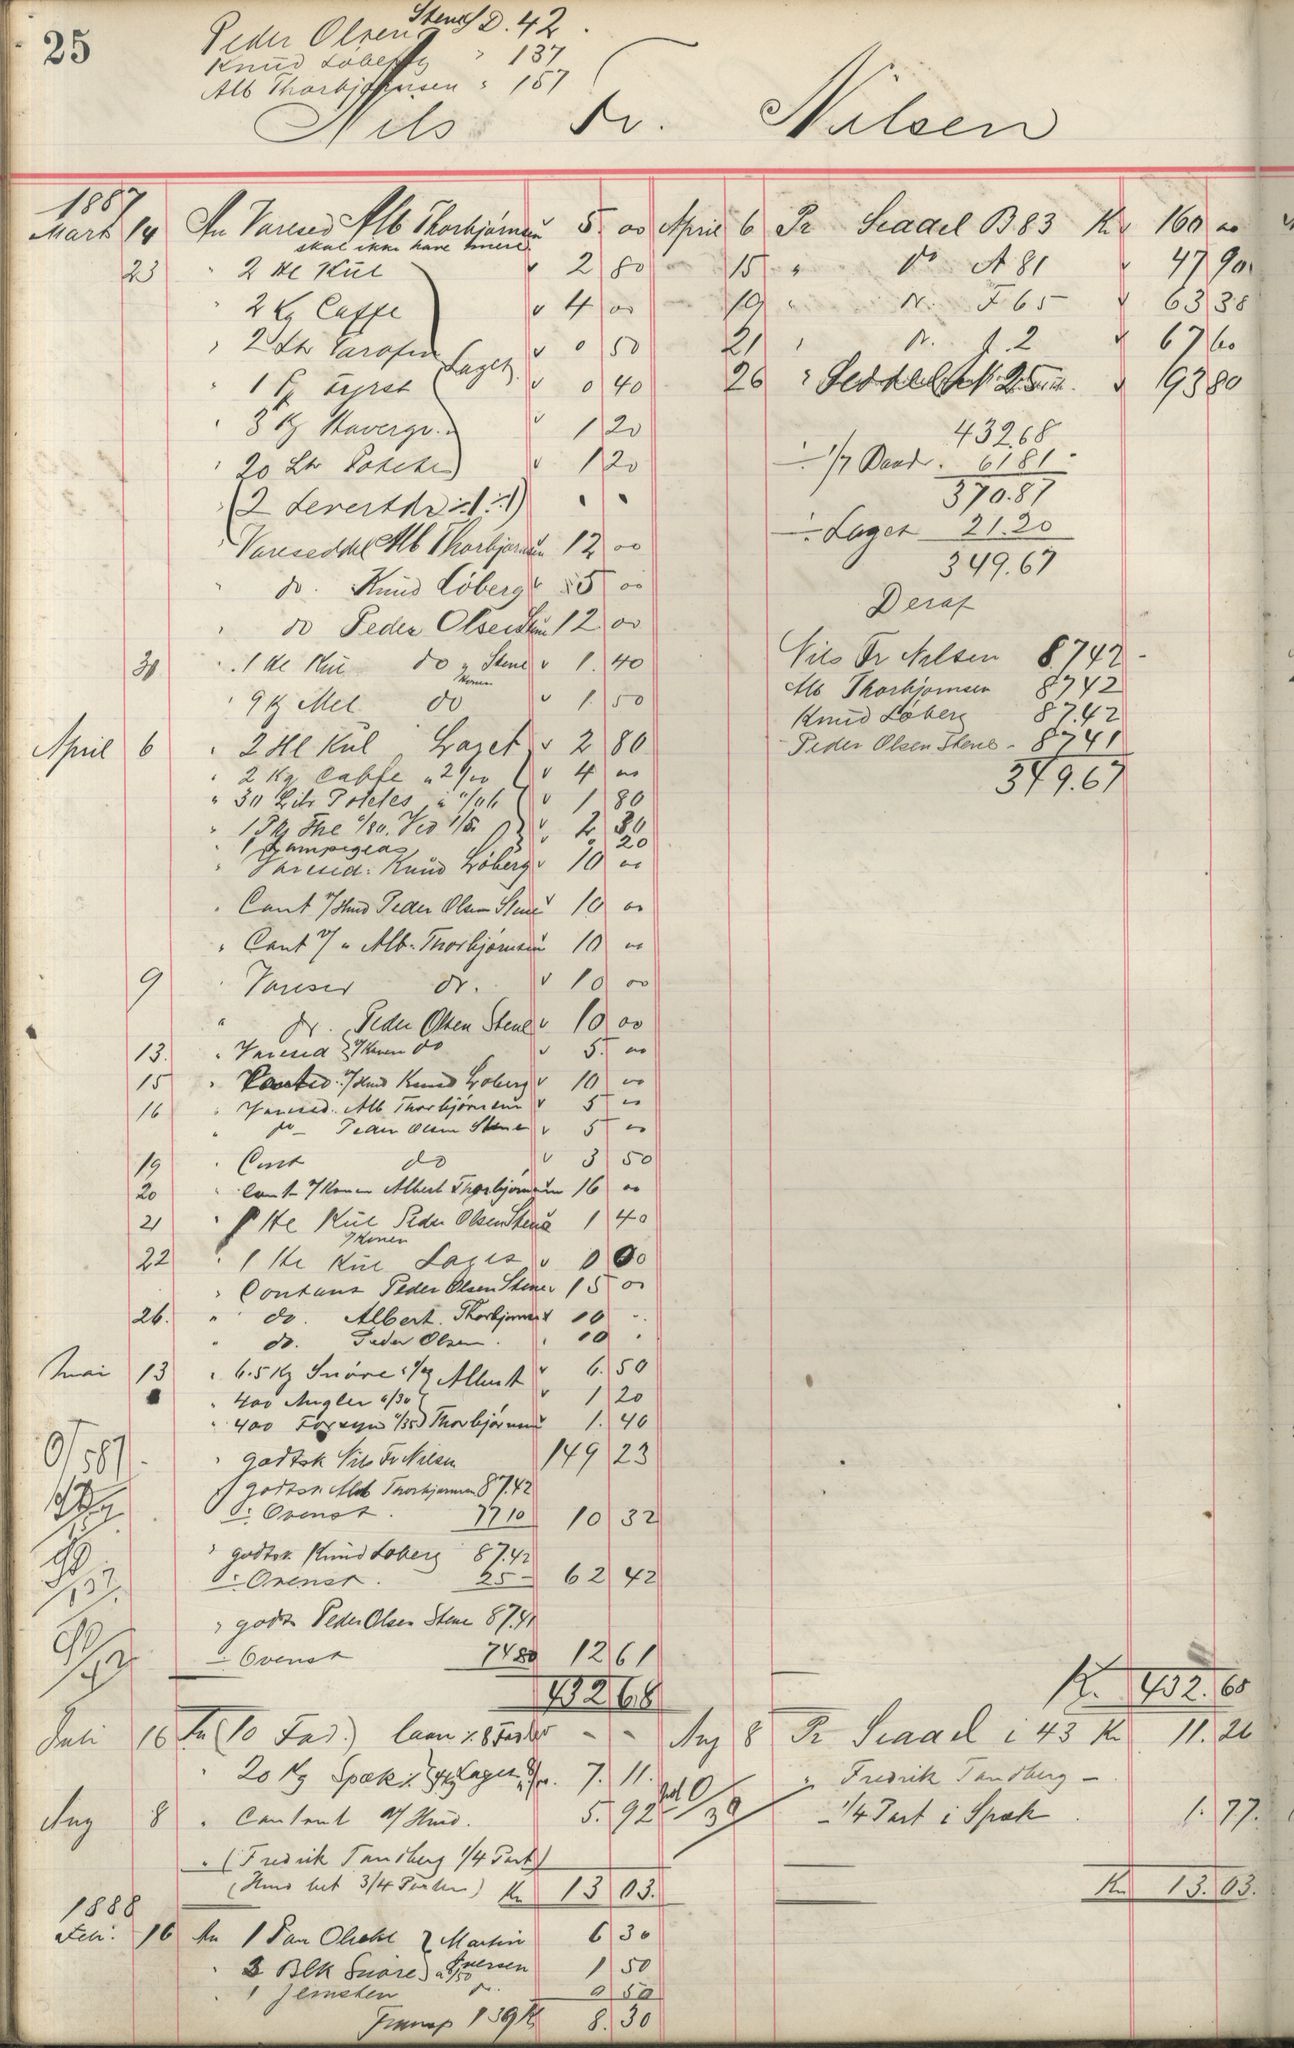 25
Peder Olsen Stene S D. 42.
Knud Løberg " 137
Alb Thorbjørnsen " 157
Nils Fr. Nilsen
1887
Marts 14 An Varesed Alb Thorbjørnsen 5. 00
skal ikke have mere
23 " 2 Hl Kul v 2 80
" 2 Kg Caffe v 4 00
" 2 Ltr Parafin v 0 50
Laget
" 1 Fyrst v 0 40
" 3 Kg Havregr. v 1 20
" 20 Ltr Potetes v 1 20
(2 ÷1 ÷1) " "
" Vareseddel Alb Thorbjørnsen 12 00
" do. Knud Löberg v 5 00
" do Peder Olsen Stene 12 00
30 " 1 Hl Kul do Stene v 1. 40
Konen
" 9 Kg Mel do v 1. 50
April 6 " 2 Hl Kul Laget v 2 80
" 2 Kg Caffe a 2/00 v 4 00
" 30 Litr Potetes a 0/06 v 1 80
" 1 The 0/80. Ved 1/50 v 2 30
" 1 Lampeglas v 0. 20
" Varesed: Knud Löberg v 10 00
" Cont v/ Hmd Peder Olsen Stene v 10 00
" Cont v/ " Alb. Thorbjørnsen 10 00
9 " Varesed do. v 10 00
" do. Peder Olsen Stene v 10 00
13. " Varesed v/Konen do v 5. 00
15 " v/Hmd Knud Loberg v 10 00
16 " Varesed. Alb Thorbjørnsen v 5 00
" do - Peder Olsen Stene v 5 00
19 " Cont do v 3 50
20 " Cont v/Konen Albert Thorbjørnsen 16 00
21 " 1 Hl Kul Peder Olsen Stene 1 40
v/Konen
22 " 1 Hl Kul Laget v 0 00
" Contant Peder Olsen Stene v 15 00
26. " do. Albert. Thorbjørnsen v 10 --
" do. Peder Olsen. 10 "
Mai 13 " 6.5 Kg Snöre Albert v 6. 50
" 400 Angler 0/30 v 1 20
" 400 Forsyn 0/35 Thorbjørnsen 1. 40
O/587 " godtsk Nils Fr Nilsen 149 23
" godtsk Alb Thorbjørnsen 87.42
÷ Ovenst. 77 10 10 32
" godtsk Knud Loberg 87.42
137 ÷ Ovenst. 25 - 62 42
" godts Peder Olsen Stene 87.41
42 ÷ Ovenst 74 80 12 61
432 68
Juli 16 An (10 Fad.) laan - -
" 20 Kg Spæk Laget 7. 11.
Aug 8 " Contant v/ Hmd. 5. 92
" (Fredrik Tandberg 1/4 Part)
(Hmd 3/4 Parter) Kr 13 03.
1888
Febr. 16 An 1 Par Martin 6 30
" 3 Blk Snöre Iversen a 0/50 1 50
" 1 Jernsten do. 0 50
Transp 139 Kr 8. 30
April 6 Pr Seddel B 83 Kr 160 00
15 " do A 81 v 47 90
19 " do. F 65 v 63 38
21 " do. 2 v 67 60
26 " Seddel 25 v 93 80
432.68
÷ 1/7 6181
370.87
÷ Laget 21.20
349.67
Deraf
Nils Fr Nilsen 8742 -
Alb Thorbjørnsen 8742
Knud Løberg 87.42
Peder Olsen Stene - 8741
349.67
Kr. 432. 68
Aug 8 Pr Seddel i 43 Kr 11. 26
" Fredrik Tandberg -
- 1/4 Part i Spæk . 1. 77.
Kr 13. 03.